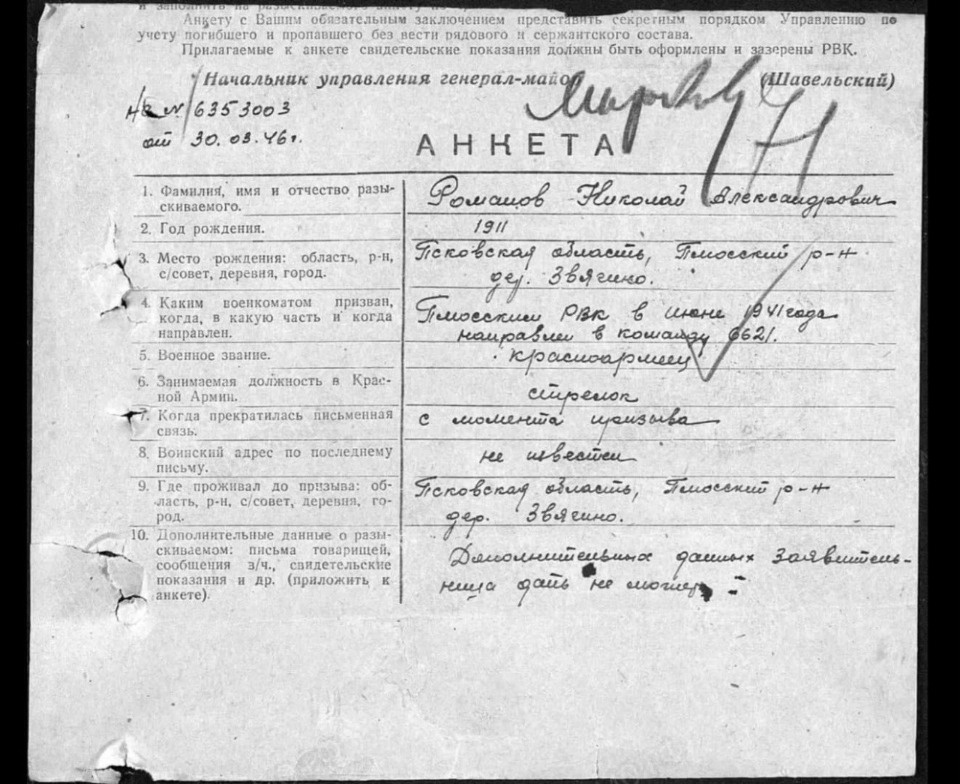 Анкету с Вашим обязательным заключением представить секретным порядком Управлению по
учету погибшего и пропавшего без вести рядового и сержантского состава.
Прилагаемые к анкете свидетельские показания должны быть оформлены и заверены РВК.
Начальник управления генерал-майор (Шавельский)
На № 6353003
от 30.03.46г.
АНКЕТА
1. Фамилия, имя и отчество разы-
скиваемого.
Романов Николай Александрович
2. Год рождения.
1911
3. Место рождения: область, р-н,
с/совет, деревня, город.
Псковская область, Плюсский р-н
дер. Звягино.
4. Каким военкоматом призван,
когда, в какую часть и когда
направлен.
Плюсским РВК в июне 1941 года
направлен в команду 6621.
5. Военное звание.
красноармеец
6. Занимаемая должность в Крас-
ной Армии.
стрелок
7. Когда прекратилась письменная
связь.
с момента призыва
8. Воинский адрес по последнему
письму.
не известен
9. Где проживал до призыва: об-
ласть, р-н, с/совет, деревня, го-
род.
Псковская область, Плюсский р-н
дер. Звягино.
10. Дополнительные данные о разы-
скиваемом: письма товарищей,
сообщения в/ч., свидетельские
показания и др. (приложить к
анкете).
Дополнительных данных заявитель-
ница дать не может